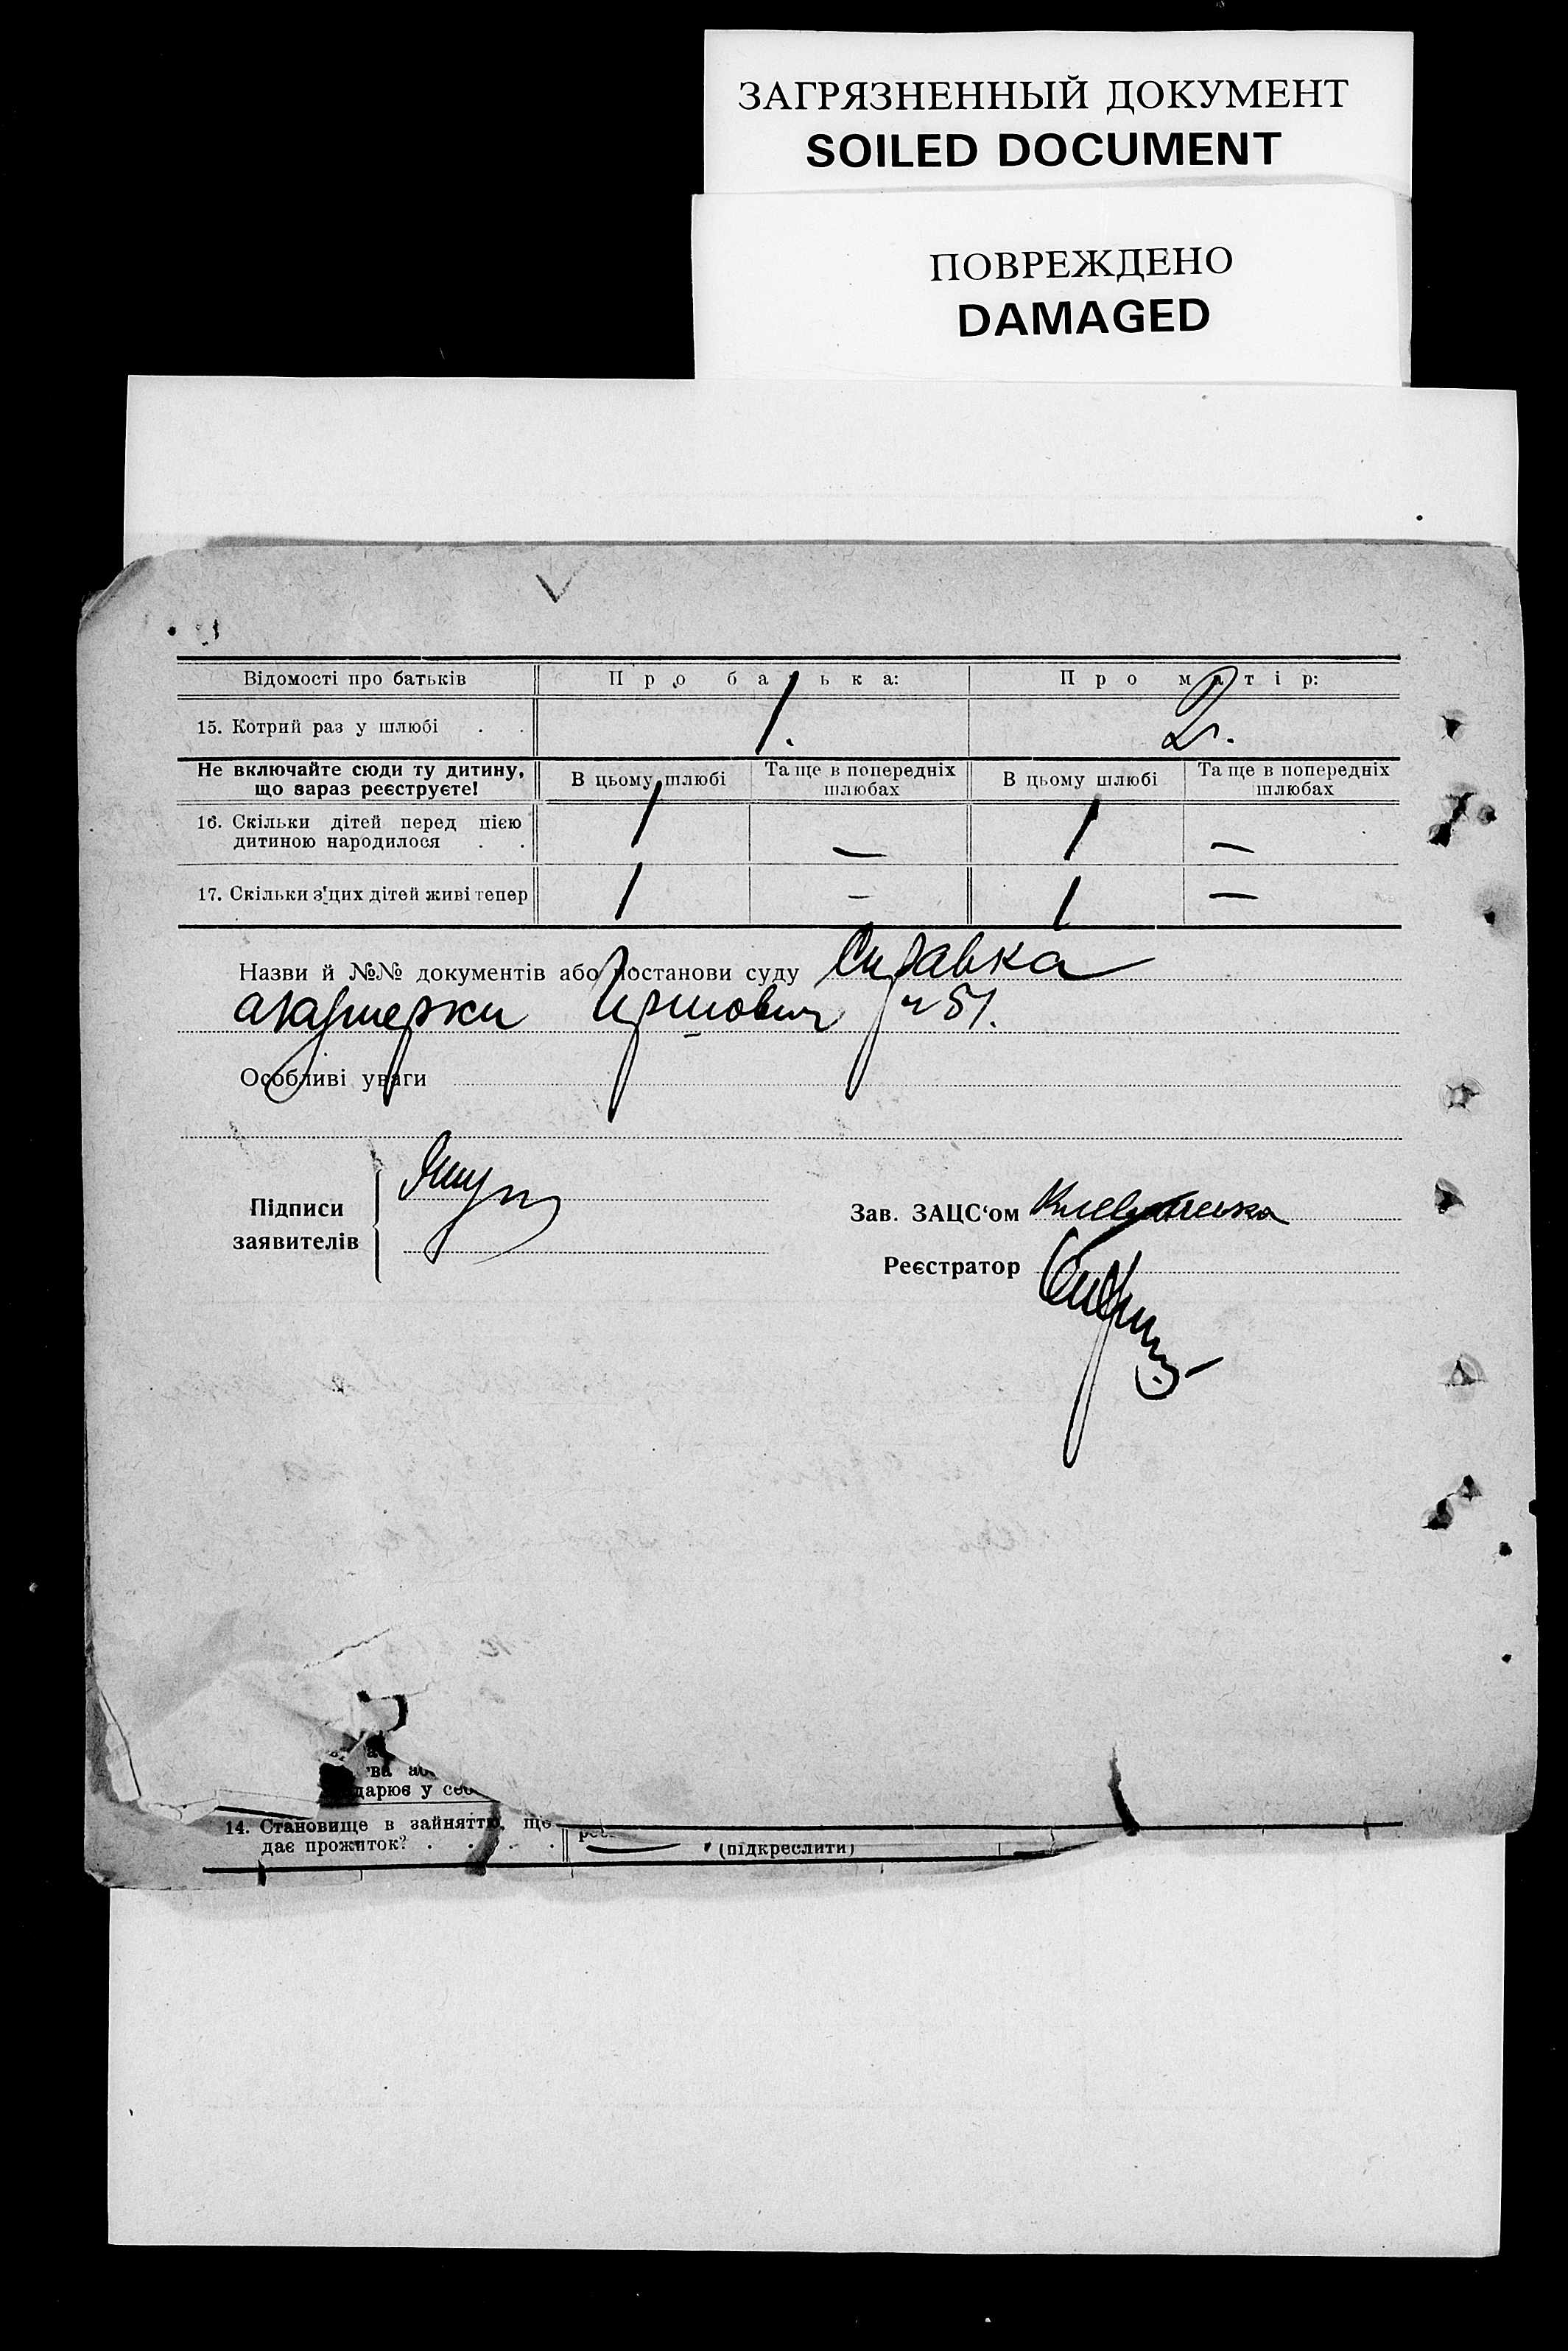 ЗАГРЯЗНЕННЫЙ ДОКУМЕНТ
SOILED DOCUMENT
ПОВРЕЖДЕНО
DAMAGED
Відомості про батьків Про батька: Про матір:
15. Котрий раз у шлюбі . . 1. 2.
Не включайте сюди ту дитину, що зараз реєструєте! В цьому шлюбі Та ще в попередніх шлюбах В цьому шлюбі Та ще в попередніх шлюбах
16. Скільки дітей перед цією
дитиною народилося . . 1 — 1 —
17. Скільки з цих дітей живі тепер 1 — 1 —
Назви й №№ документів або постанови суду Справка
акушерки
Особливі уваги
Підписи
заявителів
Зав. ЗАЦС‘ом
Реєстратор
14. Становище в зайнятті, що
дає прожиток? . . . . (підкреслити)